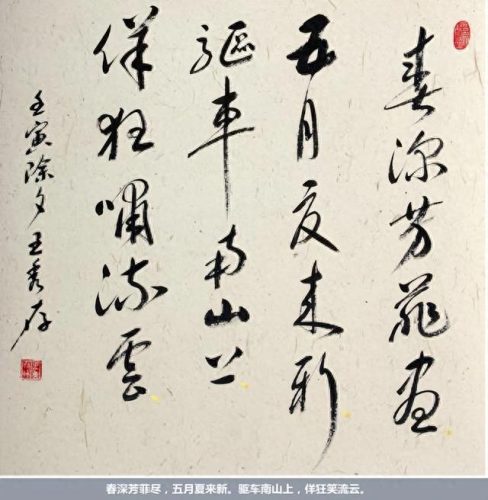 春深芳菲盡
五月夏来新
驅車南山上
佯狂嘯流雲
壬寅除夕王秀存
春深芳菲尽，五月夏来新。驱车南山上，佯狂笑流云。